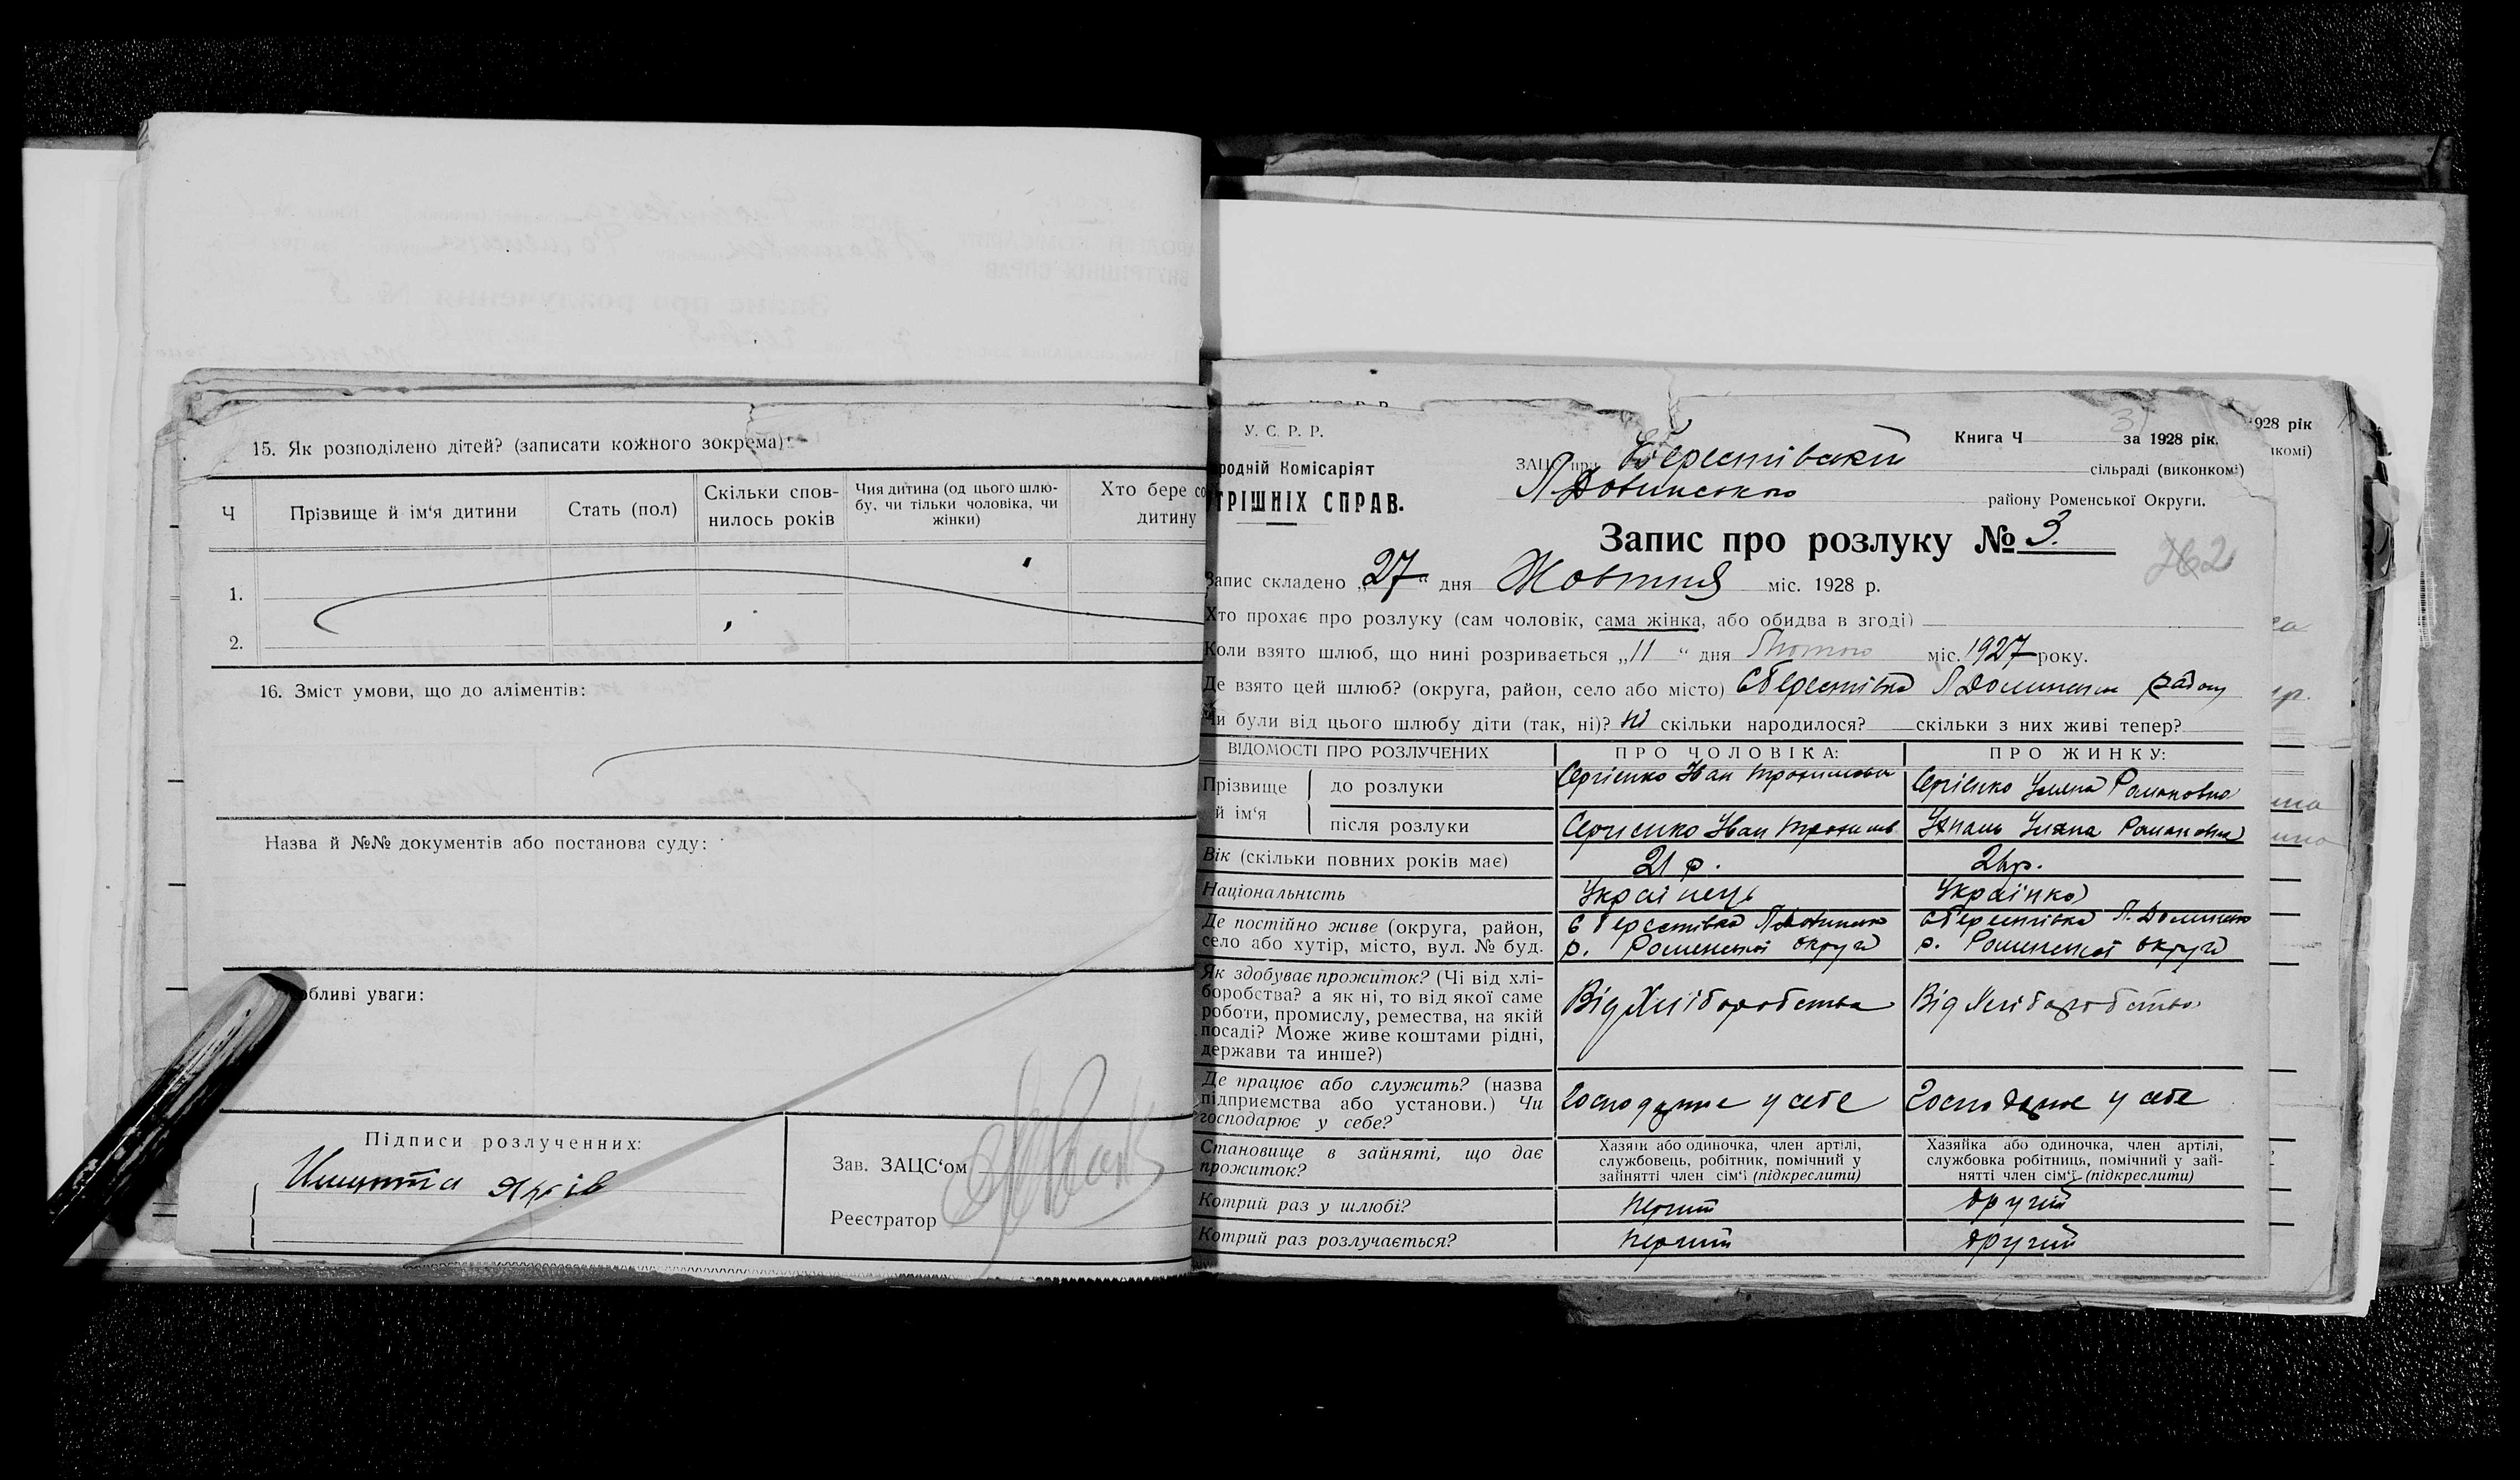 15. Як розподілено дітей? (записати кожного зокрема):
Ч Прізвище й ім‘я дитини Стать (пол) Скільки спов-нилось років Чия дитина (од цього шлю-бу, чи тільки чоловіка, чи жінки) Хто бере со дитину
1.
2.
16. Зміст умови, що до аліментів:
Назва й №№ документів або постанова суду:
обливі уваги:
Підписи розлученних:
Зав. ЗАЦС‘ом
Реєстратор
У. С. Р. Р.
родній Комісаріят
ТРІШНІХ СПРАВ.
Книга Ч 3 за 1928 рік.
ЗАЦС при Берестівській сільраді (виконкомі)
району Роменської Округи.
928 рік
нкомі)
Запис про розлуку № 3.
262
Запис складено „27“ дня Жовтня міс. 1928 р.
Хто прохає про розлуку (сам чоловік, сама жінка, або обидва в згоді)
Коли взято шлюб, що нині розривається „11“ дня Лютого міс. 1927 року.
Де взято цей шлюб? (округа, район, село або місто) с Берестівка Л Долинськ район
Чи були від цього шлюбу діти (так, ні)? ні скільки народилося? скільки з них живі тепер?
ВІДОМОСТІ ПРО РОЗЛУЧЕНИХ ПРО ЧОЛОВІКА: ПРО ЖИНКУ:
Прізвище й ім‘я
до розлуки Сергієнко Іван Трохимович Сергієнко Уляна Романовна
після розлуки Сергієнко Іван Трохимов Уляна Романовна
Вік (скільки повних років має) 21 р. 26 р.
Національність Українець Українка
Де постійно живе (округа, район, село або хутір, місто, вул. № буд. с Берестівка р. Роменської округи с Берестівка Л. Долинськ р. Роменської округи
Як здобуває прожиток? (Чі від хлі-
боробства? а як ні, то від якої саме
роботи, промислу, ремества, на якій
посаді? Може живе коштами рідні,
держави та инше?)
Від Хліборобства Від Хліборобства
Де працює або служить? (назва
підприємства або установи.) Чи
господарює у себе?
Господарює у себе Господарює у себе
Становище в зайняті, що дає
прожиток?
Хазяїн або одиночка, член артілі,
службовець, робітник, помічний у
зайнятті член сім‘ї (підкреслити)
Хазяйка або одиночка, член артілі,
службовка робітниць, помічний у зай-
нятті член сім‘ї (підкреслити)
Котрий раз у шлюбі? перший другий
Котрий раз розлучається? перший другий